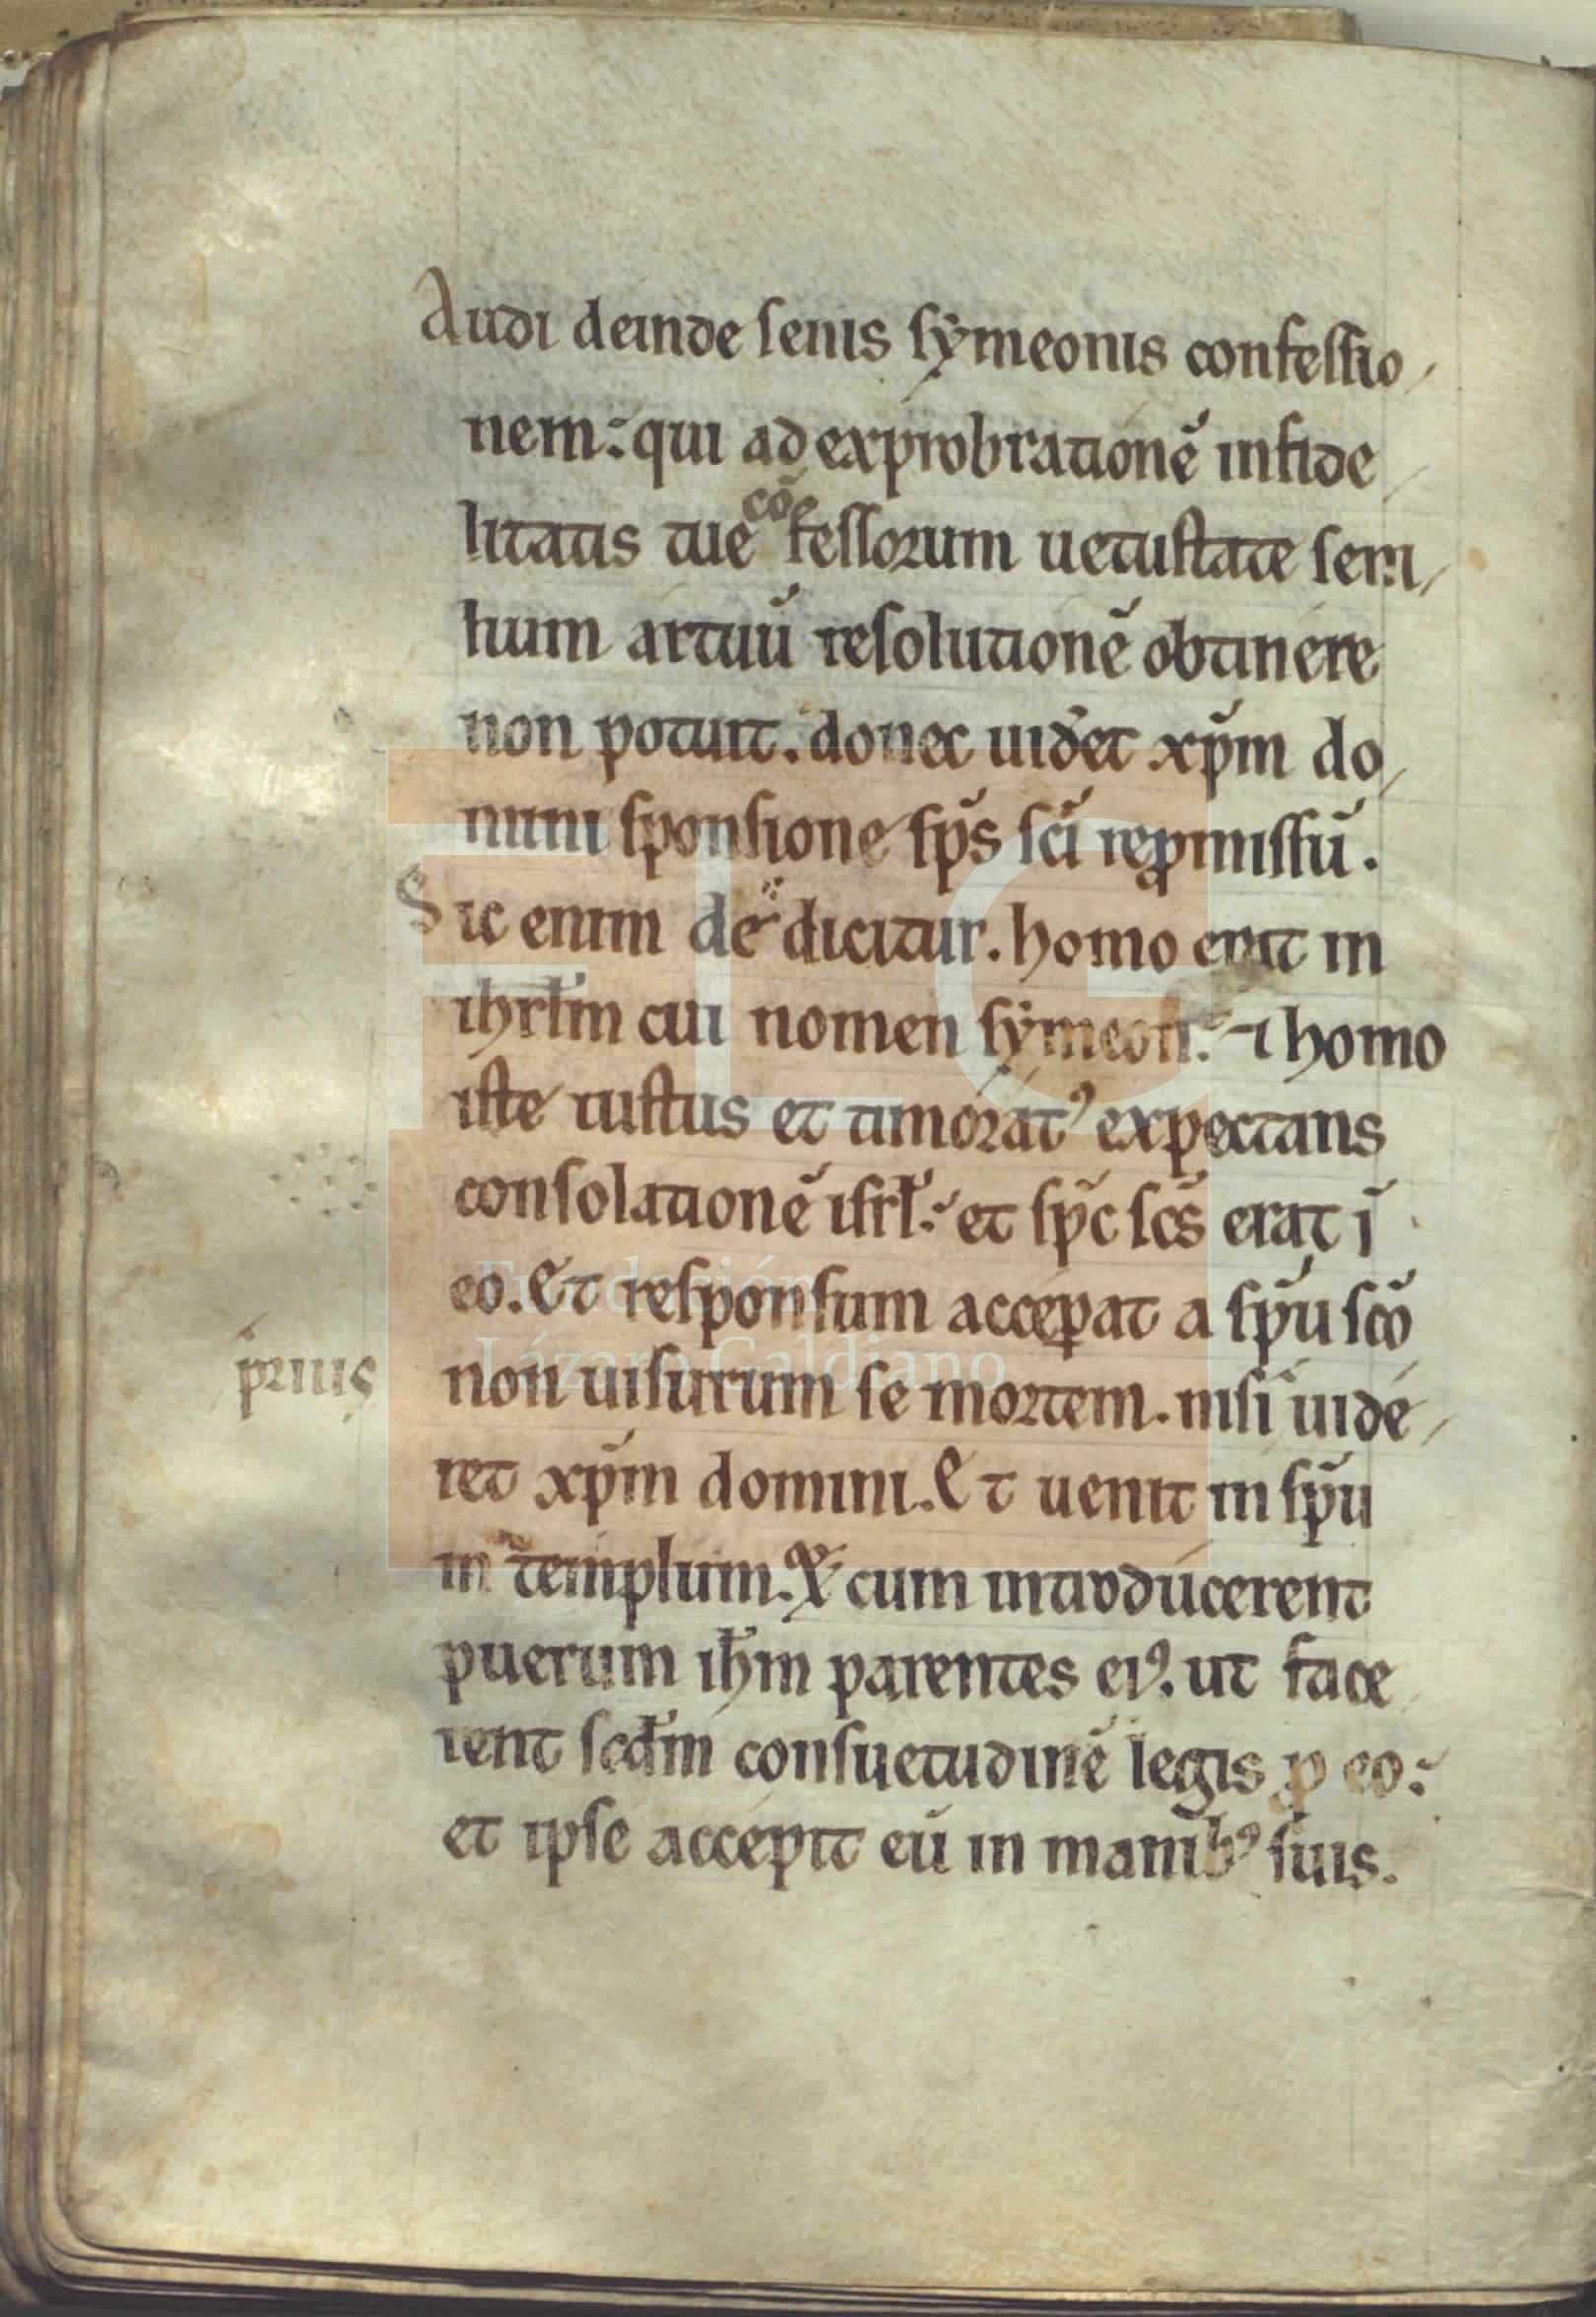 Audi deinde senis sẏmeonis confessio/
nem: qui ad exprobrationē infide/
litatis tue cōfessorum uetustate seni/
lium artuū resolutionē obtinere
non potuit. donec uid̄et xp̄m do/
mini sponsione sp̄s sc̄i reꝓmissū.
Sic enim de dicitur. homo erat in
ihrl̄m cui nomen sẏmeon: ⁊ homo
iste iustus et timorat᾽ expectans
consolationē isrl̄: et sp̄c sc̄s erat ī
eo. Et responsum acceꝑat a sp̄u sc̄o
prius
non uisurum se mortem. nisi uide/
ret xp̄m domini. Et uenit in sp̄u
in templum. & cum introducerent
puerum ih̄m parentes ei᾽. ut face
rent scd̄m consuetudinē legis ꝓ eo:
et ipse accepit eū in manib᾽ suis.
Fundación
Lázaro Galdiano